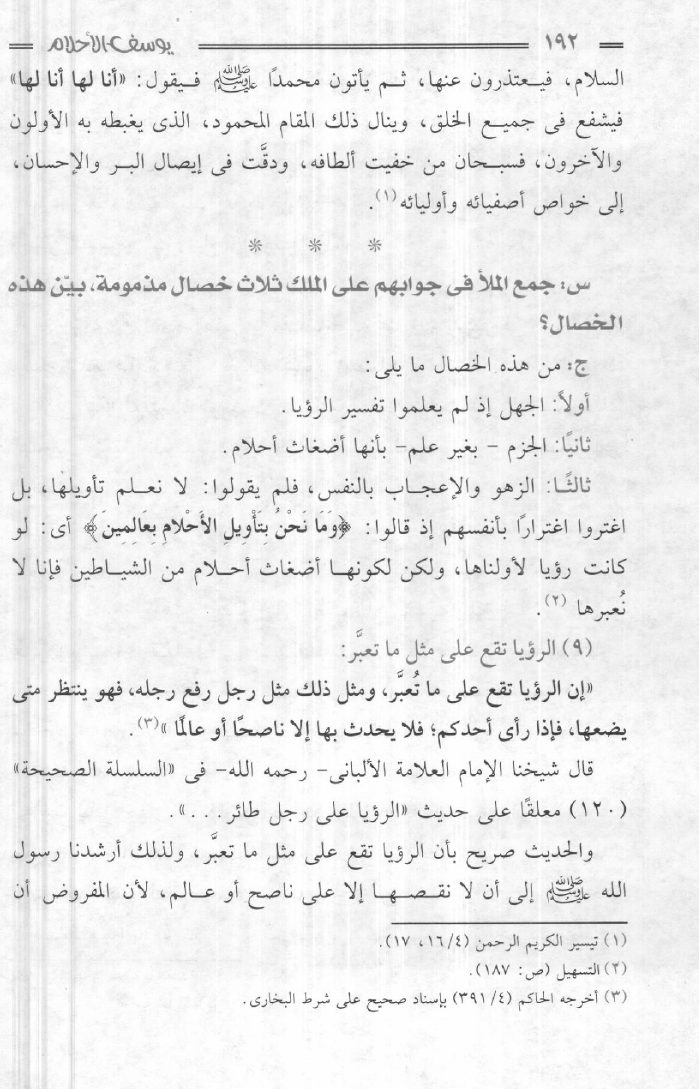 ١٩٢ يوسف الأحلام
السلام، فيعتذرون عنها، ثم يأتون محمدًا ﷺ فيقول: «أنا لها أنا لها»
فيشفع فى جميع الخلق، وينال ذلك المقام المحمود، الذى يغبطه به الأولون
والآخرون، فسبحان من خفيت ألطافه، ودقَّت فى إيصال البر والإحسان،
إلى خواص أصفيائه وأوليائه(١).
* * *
س: جمع الملأ فى جوابهم على الملك ثلاث خصال مذمومة، بيّن هذه
الخصال؟
ج: من هذه الخصال ما يلى:
أولاً: الجهل إذ لم يعلموا تفسير الرؤيا.
ثانيًا: الجزم - بغير علم- بأنها أضغاث أحلام.
ثالثًا: الزهو والإعجاب بالنفس، فلم يقولوا: لا نعلم تأويلها، بل
اغتروا اغترارًا بأنفسهم إذ قالوا: ﴿وَمَا نَحْنُ بِتَأْوِيلِ الأَحْلامِ بِعَالِمِينَ﴾ أى: لو
كانت رؤيا لأولناها، ولكن لكونها أضغاث أحلام من الشياطين فإنا لا
نُعبرها (٢).
(٩) الرؤيا تقع على مثل ما تعبَّر:
«إن الرؤيا تقع على ما تُعبَّر، ومثل ذلك مثل رجل رفع رجله، فهو ينتظر متى
يضعها، فإذا رأى أحدكم؛ فلا يحدث بها إلا ناصحًا أو عالمًا »(٣).
قال شيخنا الإمام العلامة الألبانى- رحمه الله- فى «السلسلة الصحيحة»
(١٢٠) معلقًا على حديث «الرؤيا على رجل طائر...».
والحديث صريح بأن الرؤيا تقع على مثل ما تعبَّر، ولذلك أرشدنا رسول
الله ﷺ إلى أن لا نقصها إلا على ناصح أو عالم، لأن المفروض أن
(١) تيسير الكريم الرحمن (٤/ ١٦، ١٧).
(٢) التسهيل (ص: ١٨٧).
(٣) أخرجه الحاكم (٤/ ٣٩١) بإسناد صحيح على شرط البخارى.